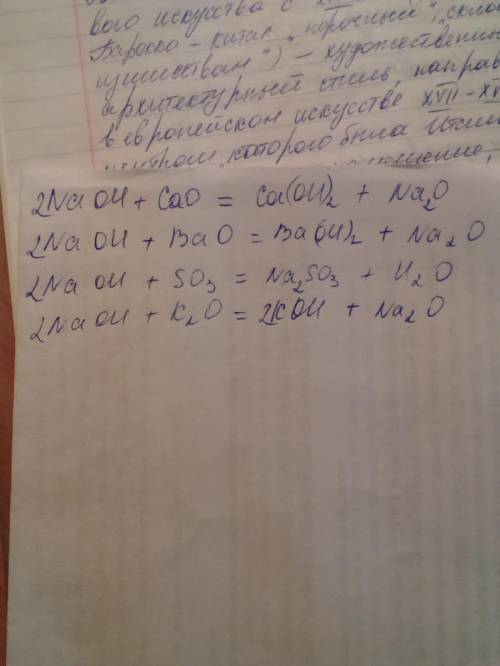 вого искусства с
Барокко - китал. "порочный", "скло
ществам") - художественн
архитектурный стиль, направ
в европейском искусстве XVII-XV
центром которого была Итал
2NaOH + CaO = Ca(OH)2 + Na2O
2NaOH + BaO = Ba(OH)2 + Na2O
2NaOH + SO3 = Na2SO3 + H2O
2NaOH + K2O = 2KOH + Na2O